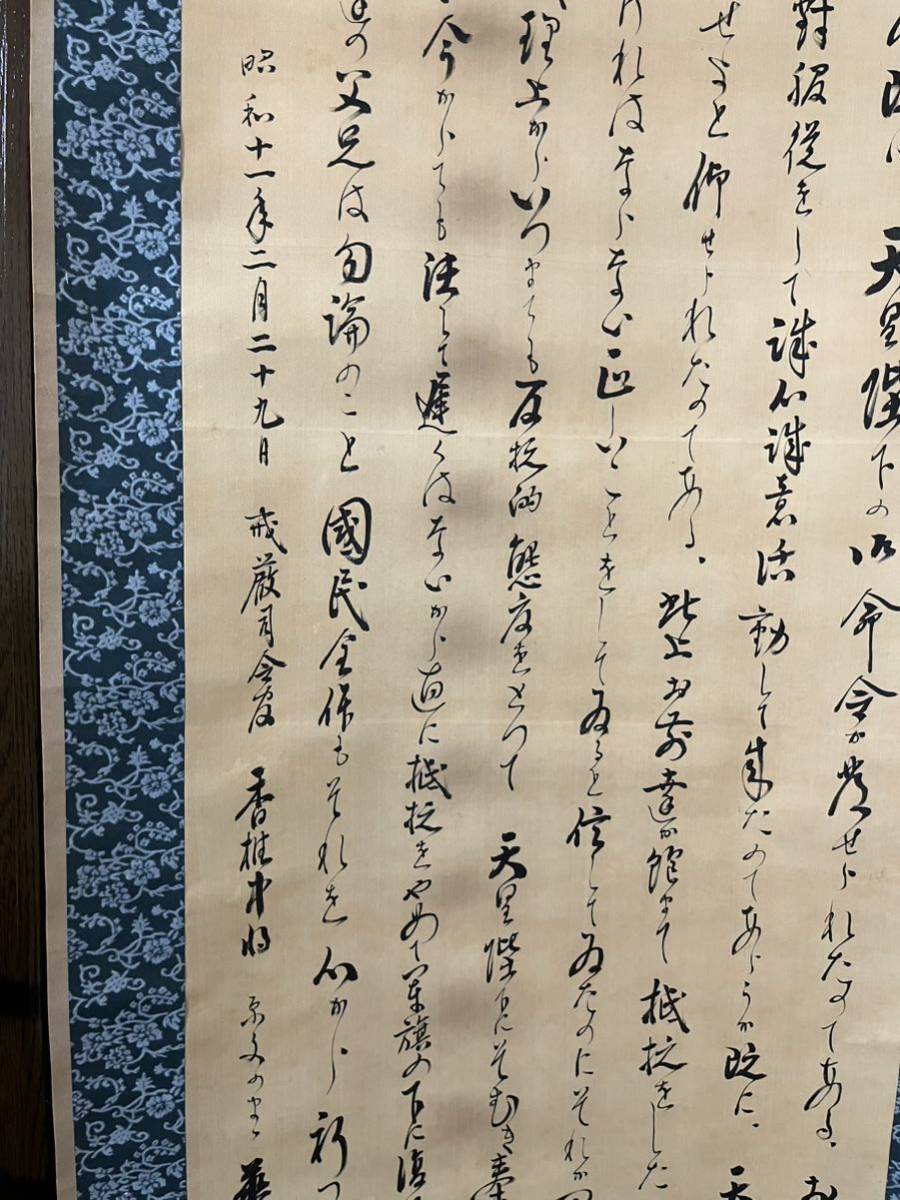 既に 天皇陛下の御命令が發せられたのである、お
對服從をして誠心誠意活動して來たのであらうが既に、天
せよと仰せられたのである、此上お前達が飽まで抵抗をした
ければならない正しいことをして ゐると信じてゐたのにそれが間
理上からいつまでも反抗的態度をとつて 天皇陛下にそむき奉
今からでも決して遲くはないから直に抵抗をやめて軍旗の下に復
達の父兄は勿論のこと國民全体もそれを心から祈つ
昭和十一年二月二十九日 戒嚴司令官 香椎中將 原文のまゝ